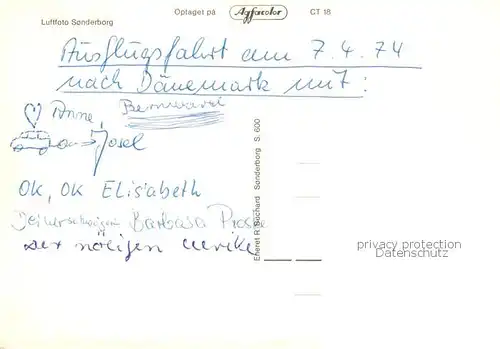 Luftfoto Sønderborg
Optaget på Agfacolor CT 18
Ausflugsfahrt am 7.4.74
nach Dänemark mit:
Anne, Bernward
Josef
OK, OK ELisabeth
Barbara
Ulrike
Eneret R. Suchard Sønderborg S. 600
privacy protection
Datenschutz